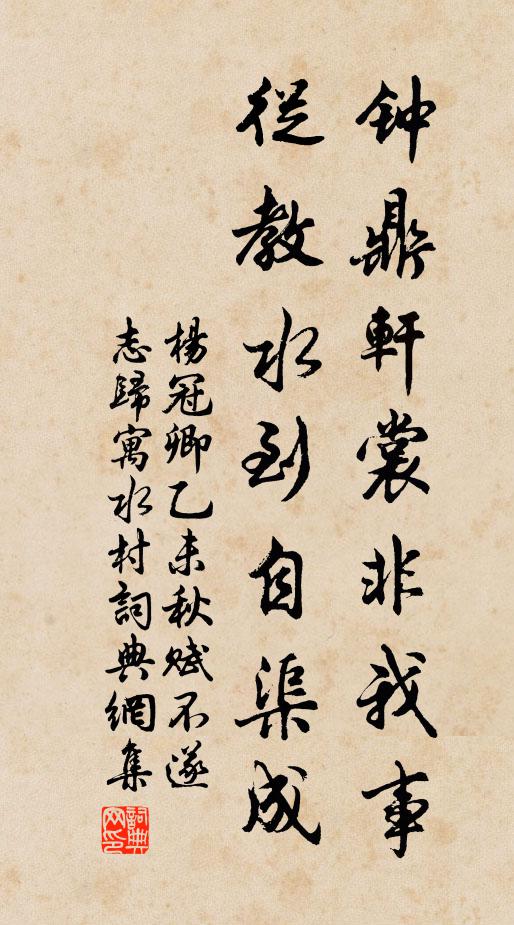 钟鼎軒裳非我事
從教水到自渠成
楊冠卿乙未秋賦不遂
志歸寓水村詞典網集
詞典网印